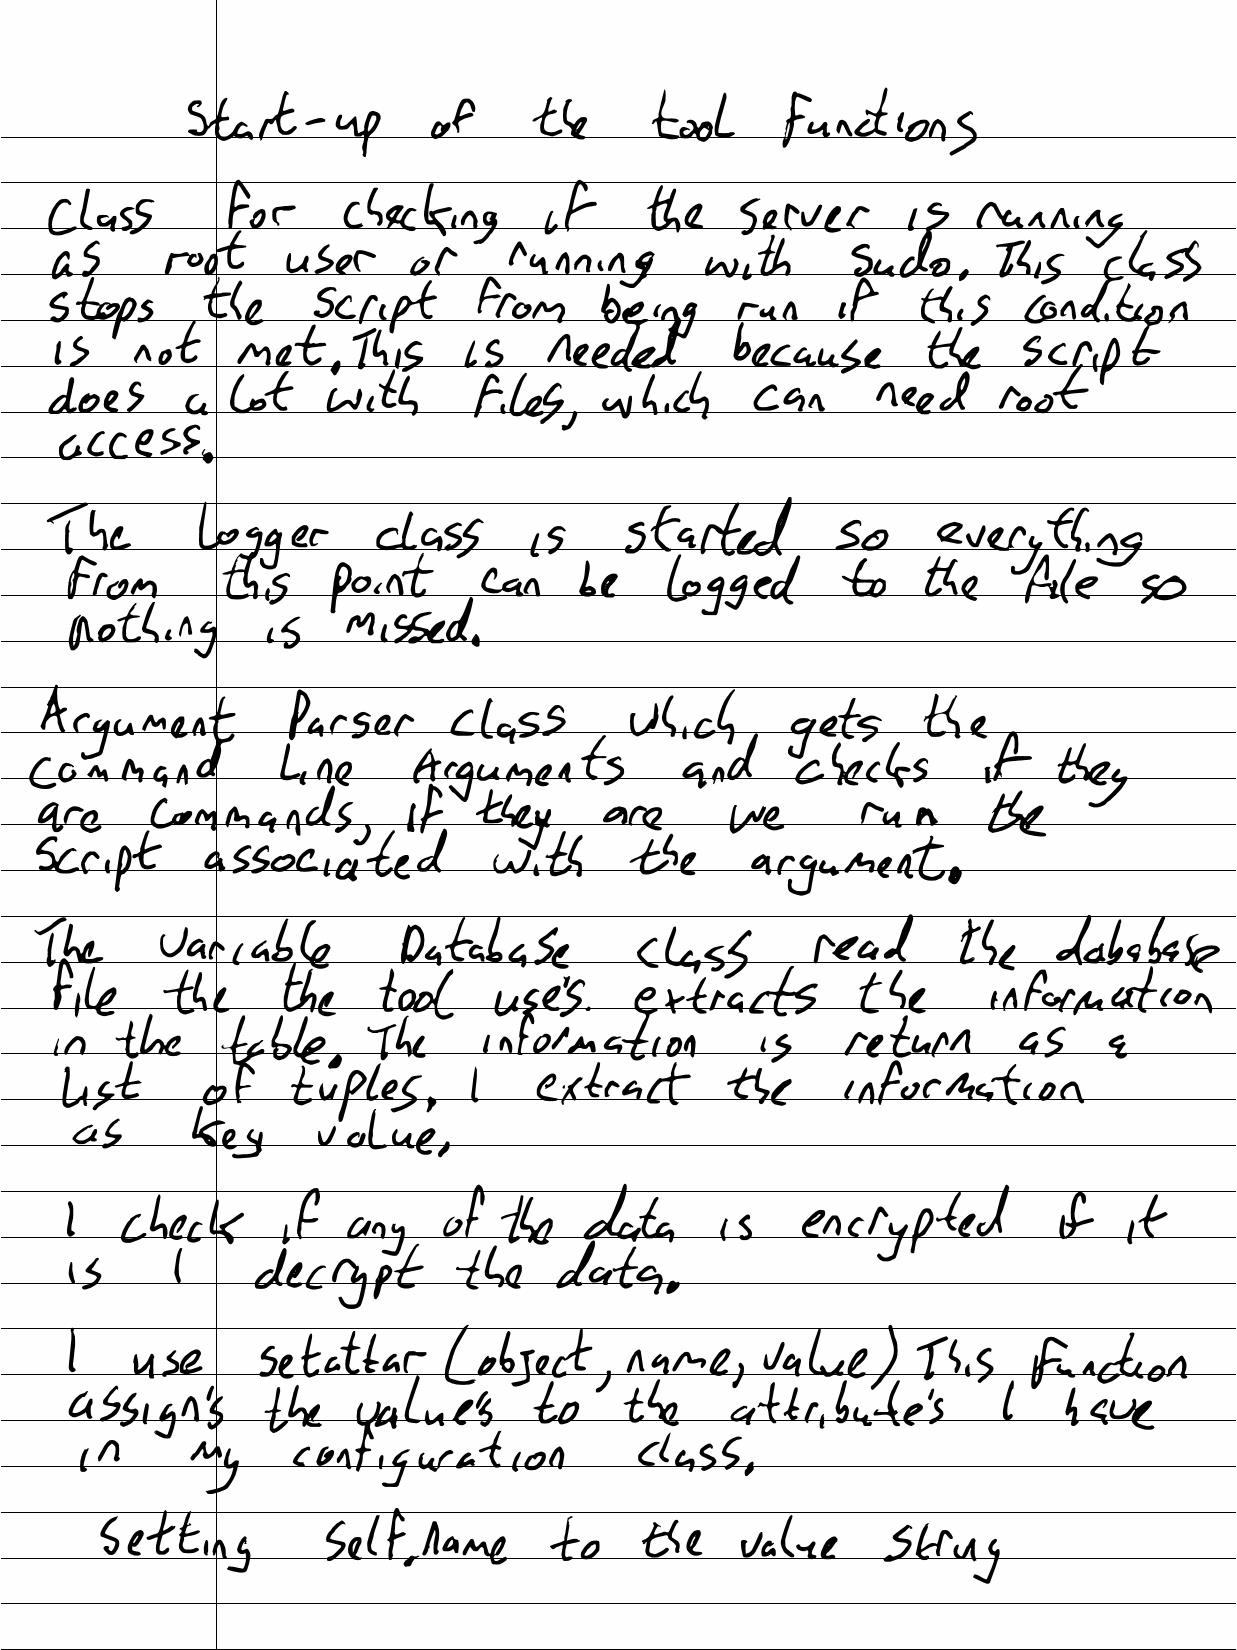 Start-up of the tool functions
Class for checking if the server is running
as root user or running with sudo. This class
stops the script from being run if this condition
is not met. This is needed because the script
does a lot with files, which can need root
access.
The Logger class is started so everything
from this point can be logged to the file so
nothing is missed.
Argument Parser class which gets the
command Line Arguments and checks if they
are commands, if they are we run the
script associated with the argument.
The Variable Database class read the dababase
file the the tool use's. extracts the information
in the table. The information is return as a
list of tuples. I extract the information
as key value.
I check if any of the data is encrypted if it
is I decrypt the data.
I use setattar (object, name, value) This function
assign's the value's to the attribute's I have
in my configuration class.
Setting Self.name to the value string